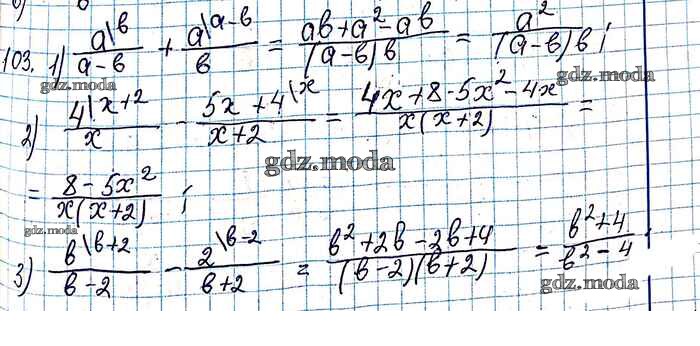 103. 1) a\b/(a-b) + a\a-b/b = (ab+a²-ab)/((a-b)b) = a²/((a-b)b);
gdz.moda
gdz.moda
2) 4\x+2/x - 5x+4\x/(x+2) = (4x+8-5x²-4x)/(x(x+2)) =
gdz.moda
= (8-5x²)/(x(x+2));
gdz.moda
3) b\b+2/(b-2) - 2\b-2/(b+2) = (b²+2b-2b+4)/((b-2)(b+2)) = (b²+4)/(b²-4).
gdz.moda
gdz.moda